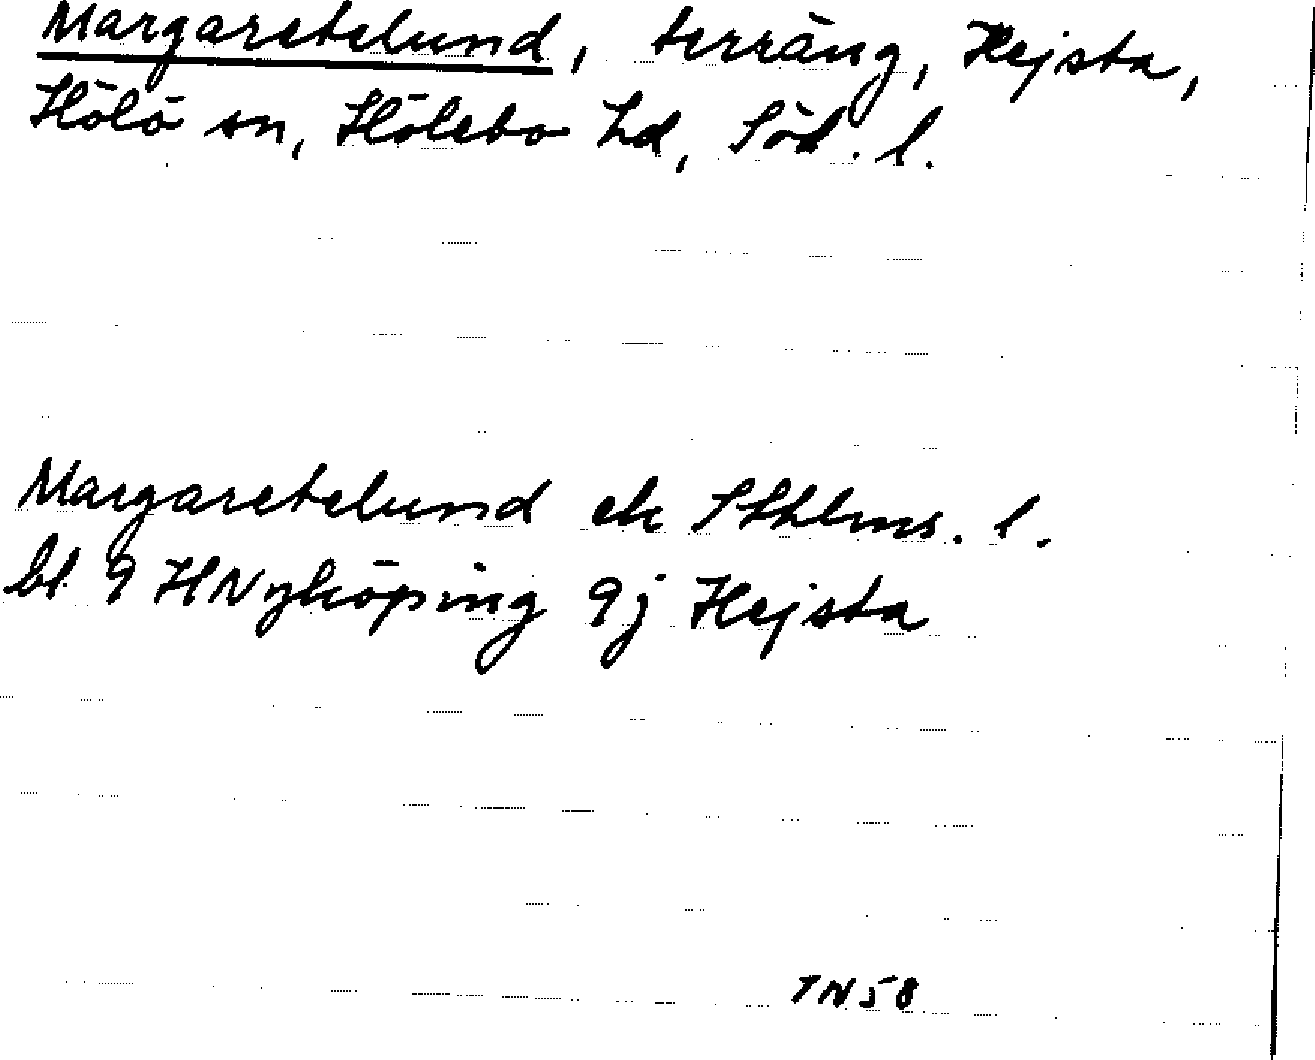 Margaretelund, terräng, Hejsta,
Hölö sn, Hölebo hd, Söd. l.
Margaretelund ek Sthlms. l.
bl 9 H Nyköping 9j Hejsta
TN58